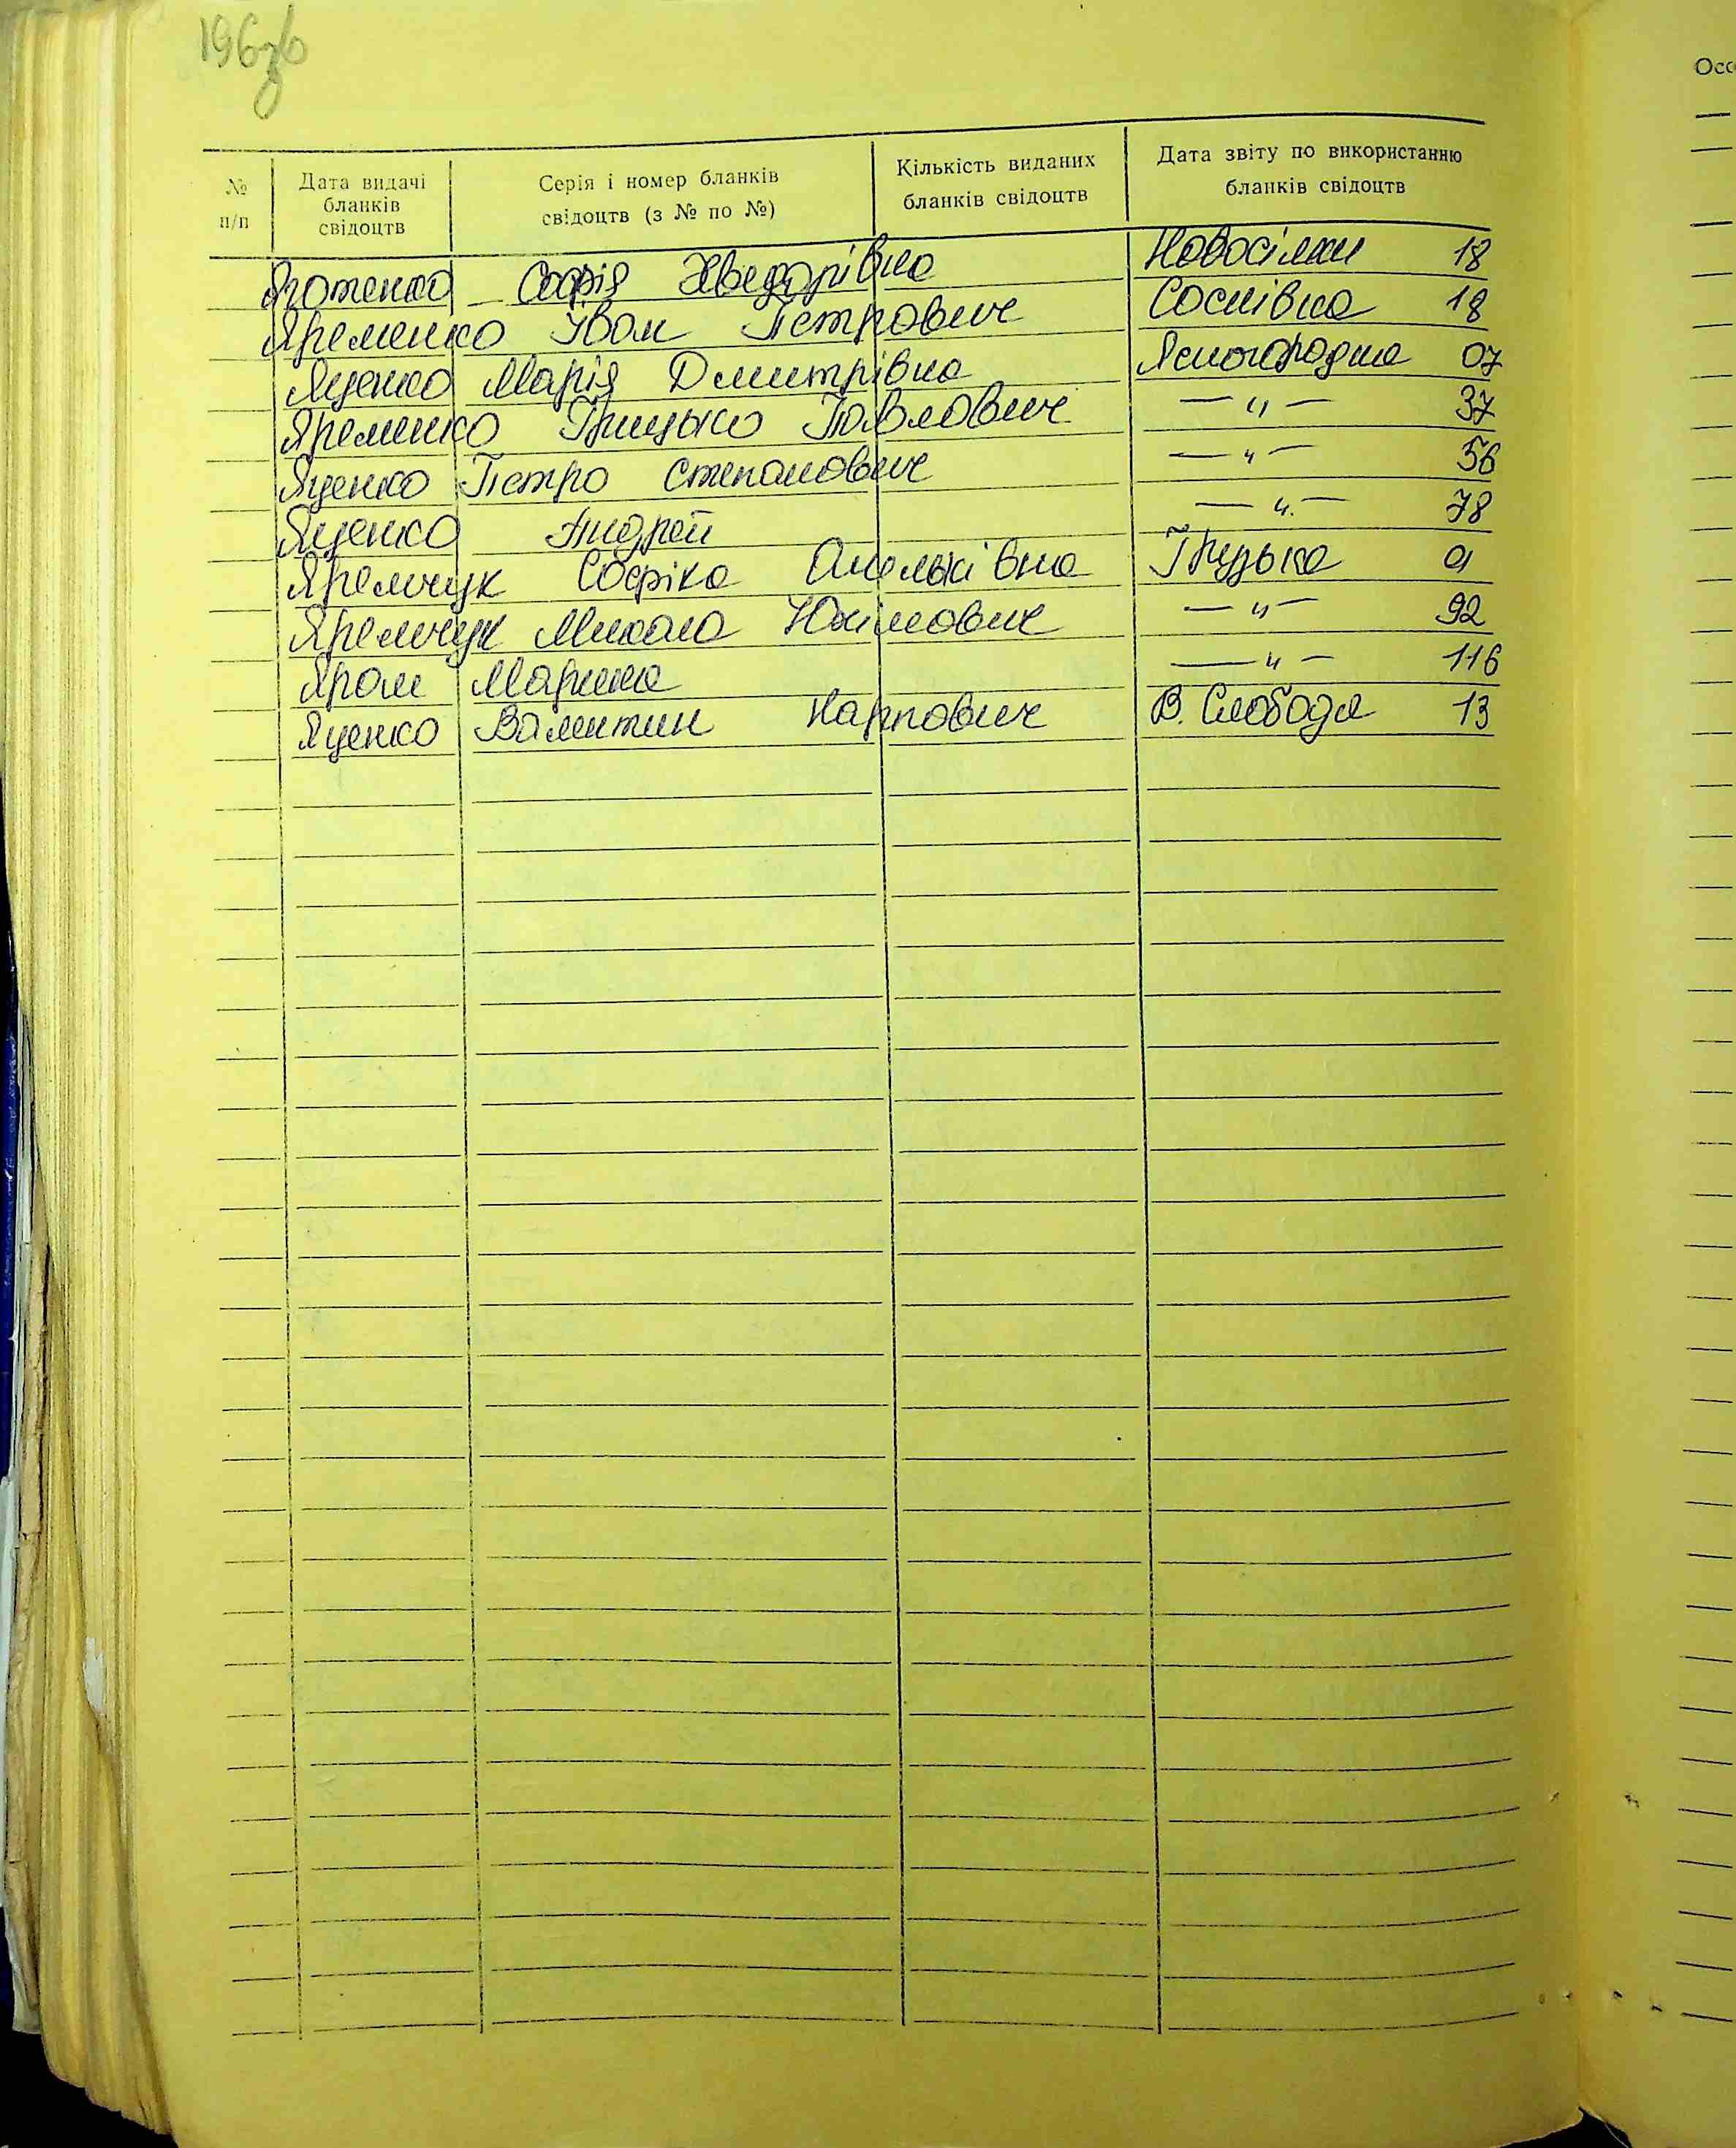 196зв
Осо
№ п/п
Дата видачі бланків свідоцтв
Серія і номер бланків свідоцтв (з № по №)
Кількість виданих бланків свідоцтв
Дата звіту по використанню бланків свідоцтв
Яготенко Софія Хведорівна Новосілки 18
Яременко Іван Петрович Соснівка 18
Яценко Марія Дмитрівна Ясногородка 07
Яременко Грицько Павлович — " — 37
Яценко Петро Степанович — " — 56
Яценко Андрей — " — 78
Яремчук Софіка Омельківна Грузька 01
Яремчук Микола Юхімович — " — 92
Яром Марина — " — 116
Яценко Валентин Карпович В. Слобода 13